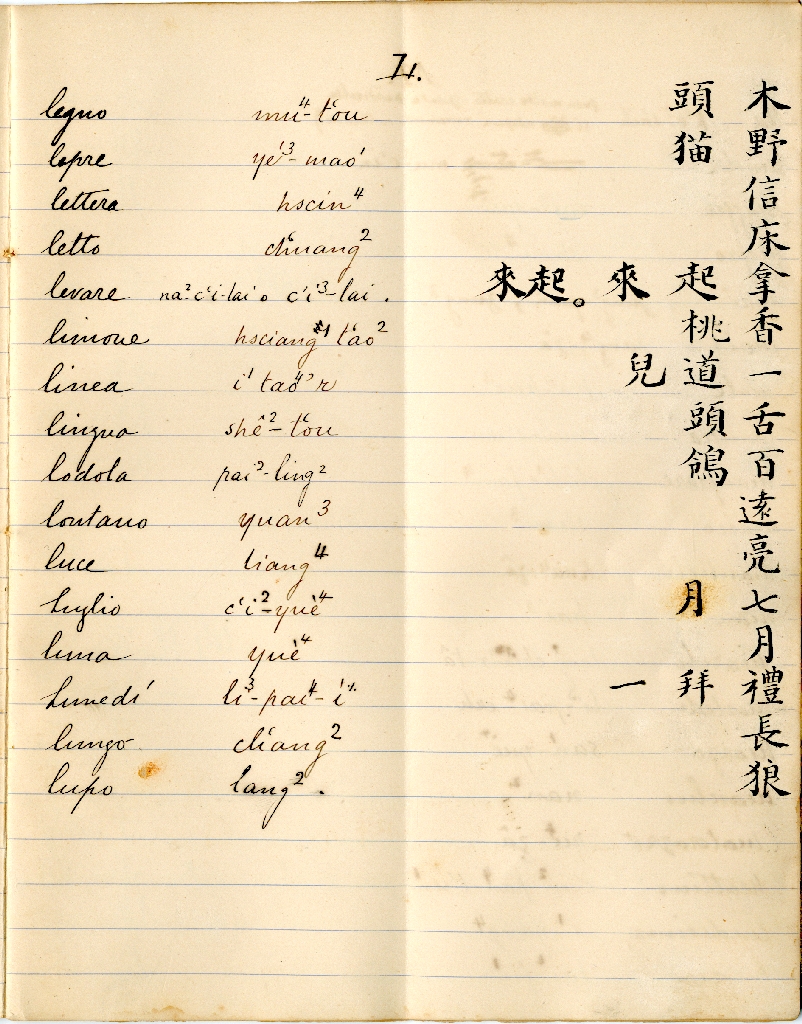 L.
legno mu⁴-t'ou 木頭
lepre yé³-mao¹ 野猫
lettera hscin⁴ 信
letto ch'uang² 床
levare na² c'i-lai o c'i³-lai. 拿起來。起來
limone hsciang¹ t'ao² 香桃
linea i¹ tao⁴ 'r 一道兒
lingua shê²-t'ou 舌頭
lodola pai³-ling² 百鴒
lontano yuan³ 遠
luce liang⁴ 亮
luglio c'i²-yuè⁴ 七月
luna yuè⁴ 月
lunedí li³-pai⁴-i¹ 禮拜一
lungo ch'ang² 長
lupo lang². 狼